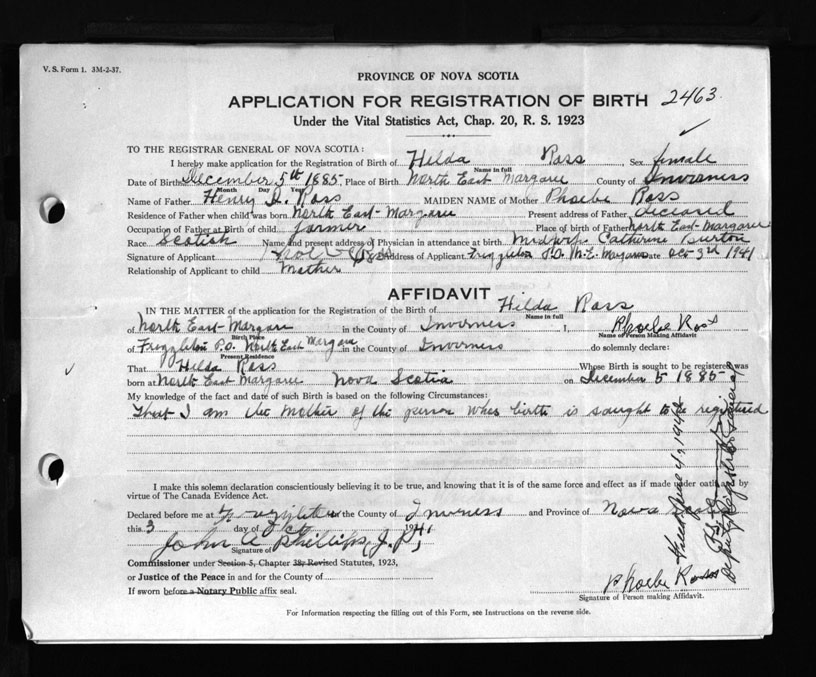 V. S. Form 1. 3M-2-37.
PROVINCE OF NOVA SCOTIA
APPLICATION FOR REGISTRATION OF BIRTH 2463
Under the Vital Statistics Act, Chap. 20, R. S. 1923
TO THE REGISTRAR GENERAL OF NOVA SCOTIA:
I hereby make application for the Registration of Birth of Hilda Ross, Sex female
Name in full
Date of Birth December 5th 1885, Place of Birth North East Margaree County of Inverness
Month Day Year
Name of Father Henry D. Ross MAIDEN NAME of Mother Phoebe Ross
Residence of Father when child was born North East Margaree Present address of Father
Occupation of Father at Birth of child farmer Place of birth of Father North East Margaree
Race Scotish Name and present address of Physician in attendance at birth Midwife Catherine Burton
Signature of Applicant Address of Applicant Frizzleton P.O. N.E. Margaree Date Oct 3rd 1941
Relationship of Applicant to child Mother
AFFIDAVIT
IN THE MATTER of the application for the Registration of the Birth of Hilda Ross
Name in full
of North East Margaree in the County of Inverness I, Phoebe Ross
Birth Place Name of Person Making Affidavit
of Frizzleton P.O. North East Margaree in the County of Inverness do solemnly declare:
Present Residence
That Hilda Ross Whose Birth is sought to be registered was
born at North East Margaree Nova Scotia on December 5 1885
My knowledge of the fact and date of such Birth is based on the following Circumstances:
That I am the Mother of the person whos birth is sought to be registered
I make this solemn declaration conscientiously believing it to be true, and knowing that it is of the same force and effect as if made under oath and by
virtue of The Canada Evidence Act.
Declared before me at Frizzleton in the County of Inverness and Province of Nova Scotia
this 3 day of Oct 1941
John A Phillips, J.P.
Signature of
Commissioner under Section 5, Chapter 38, Revised Statutes, 1923,
or Justice of the Peace in and for the County of
If sworn before a Notary Public affix seal.
Phoebe Ross
Signature of Person making Affidavit.
For Information respecting the filling out of this Form, see Instructions on the reverse side.
Filed June 4, 1942
Deputy Registrar General